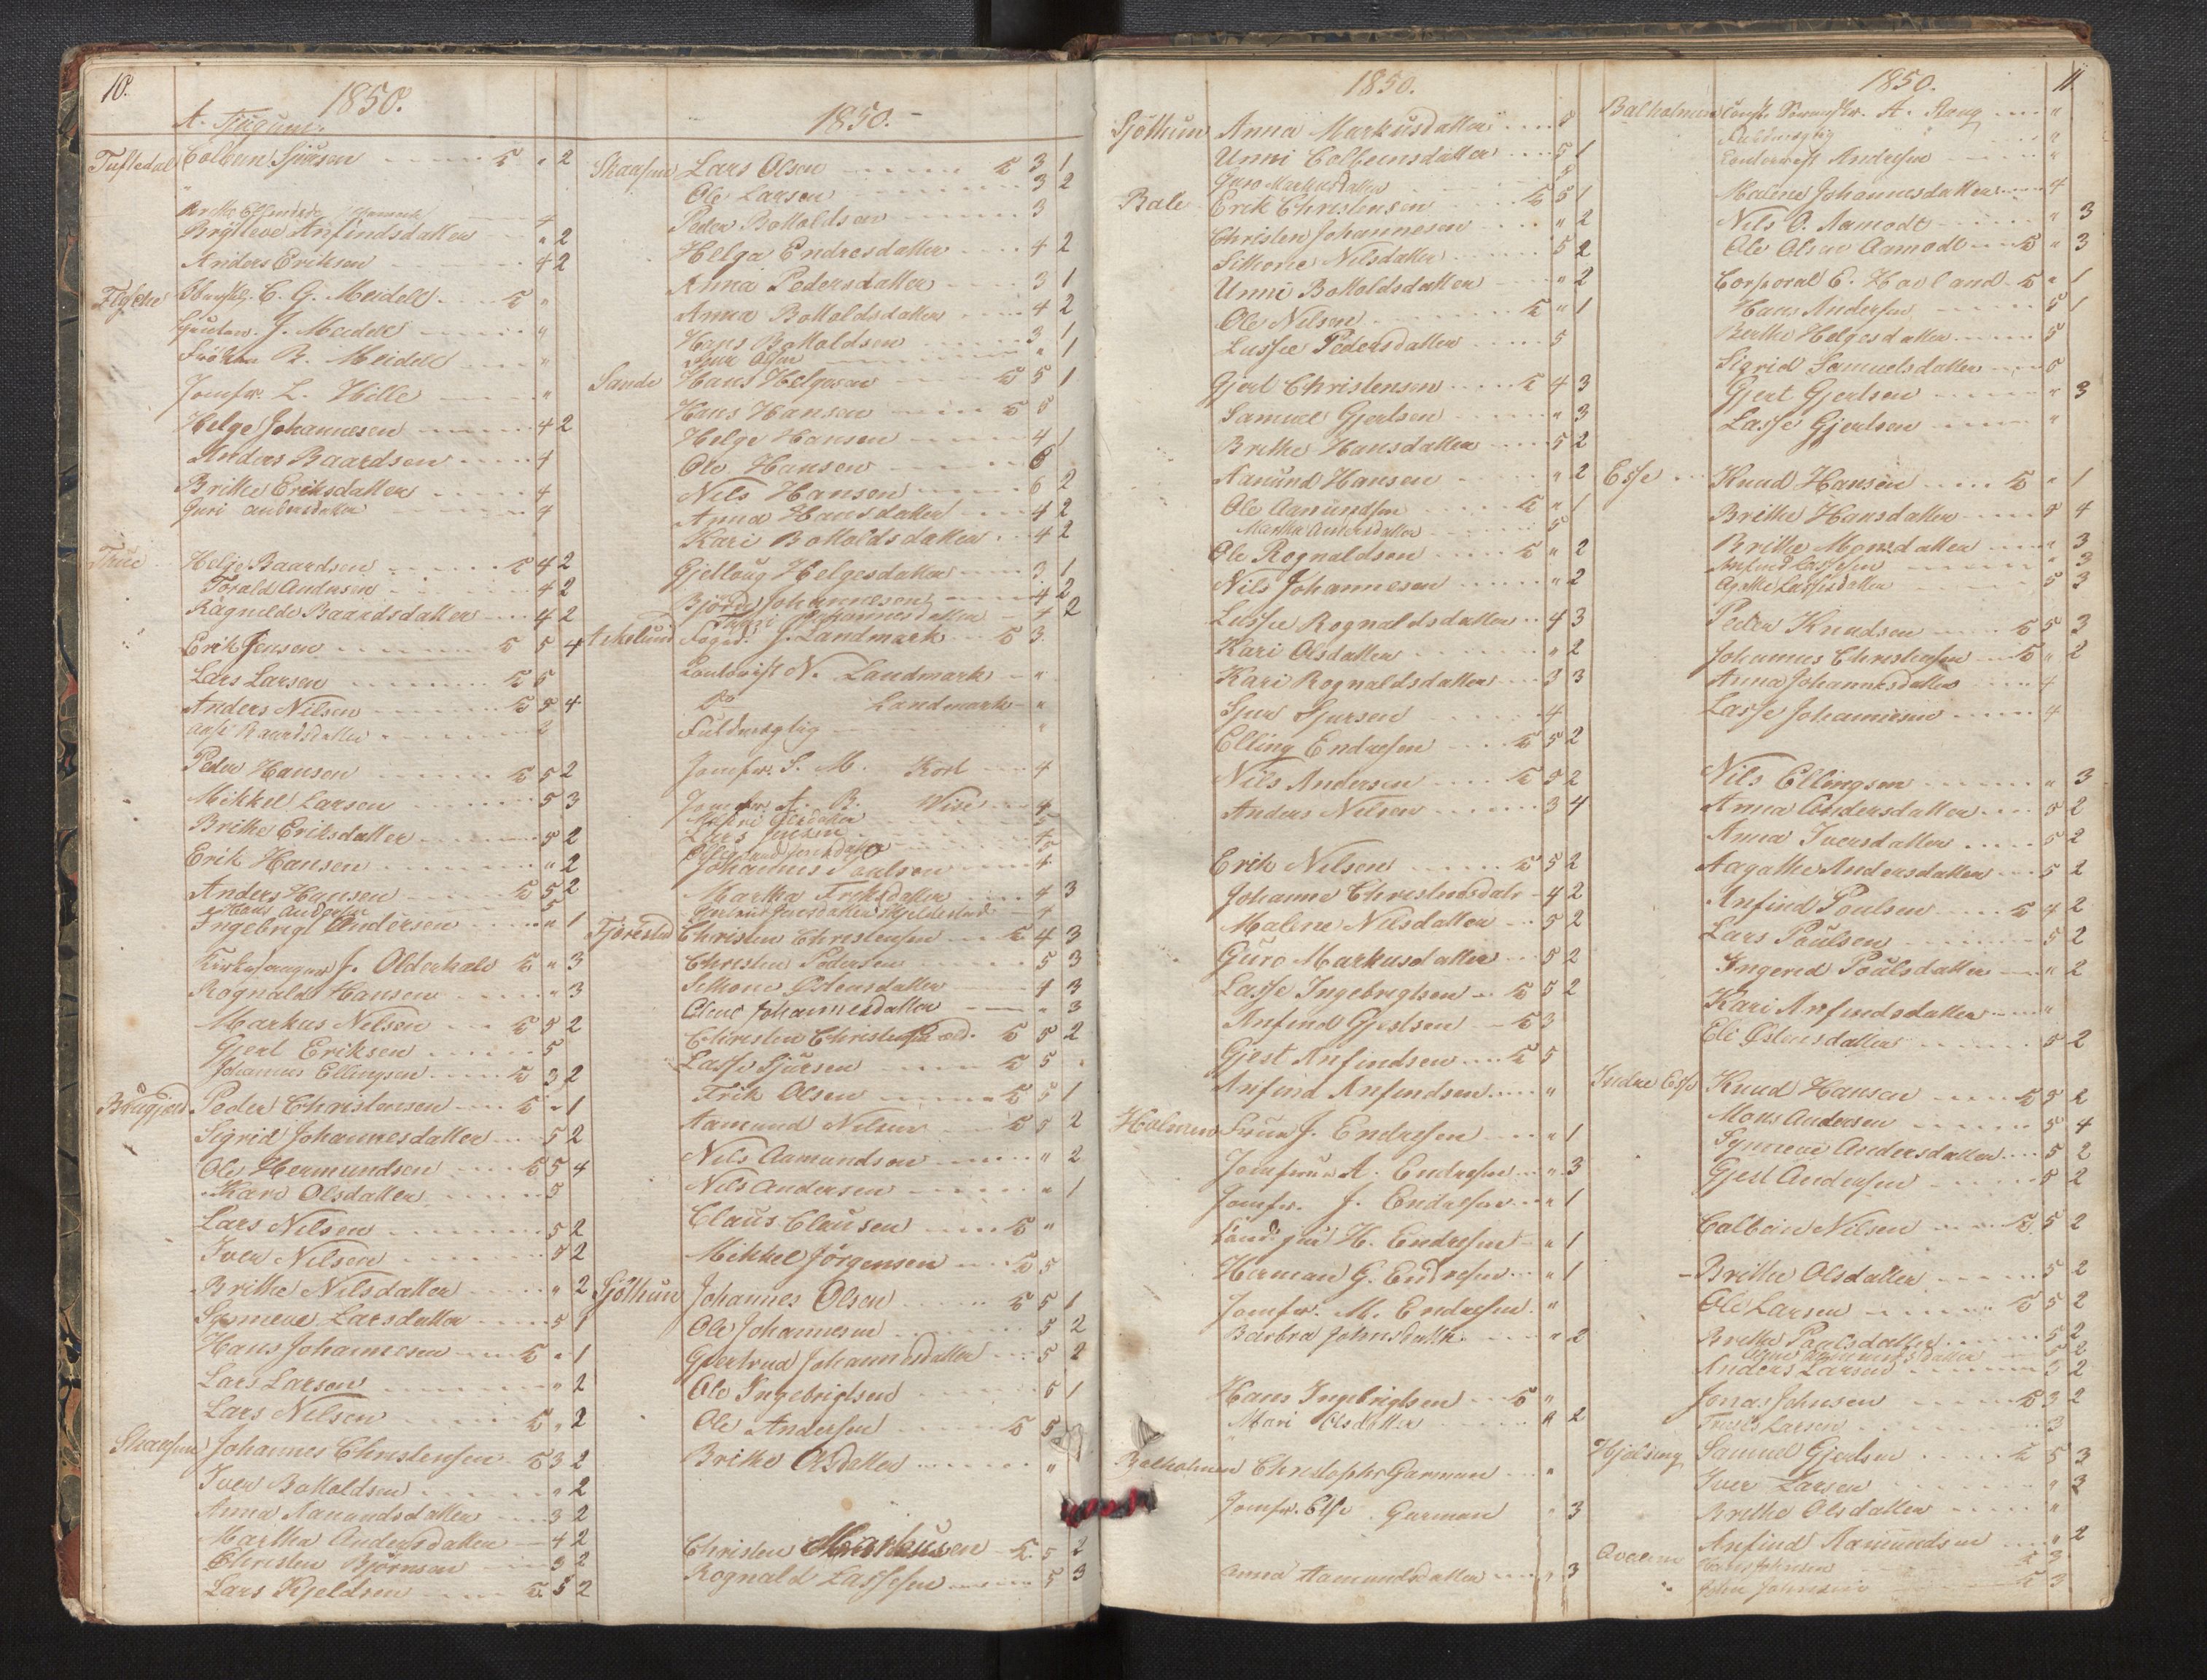 10.
1850.
A. Tjugum.
Tuftedal Colbein Sjursen " 2
Brytteve Arfindsdatter " 2
Anders Eriksen 4 2
C. G. Meidell "
J. Meidell "
Frøken R. Meidell "
Jomfr. L. Hille "
Helge Johannesen 4 2
Anders Baardsen 4
Brithe Eriksdatter 4
Guri Andersdatter 4
Helje Baardsen 4 2
Torald Andersen 4 2
Ragnilde Baardsdatter 4 2
Erik Jensen 5 4
Lars Larsen 5
Anders Nilsen 5 4
Peder Hansen 5 2
Mikkel Larsen 5 3
Brithe Eriksdatter 5 2
Erik Hansen " 2
Anders Hansen 5 2
Hans Andersen
Ingebrigt Andersen " 1
J. Olderhals " 3
Rognald Hansen " 3
Markus Nilsen 5 2
Gjert Eriksen 5
Johannes Ellingsen 3 2
Peder Christensen " 1
Sigrid Johannesdatter 5 2
Ole Hermundsen 5 4
Kari Olsdatter 5
Lars Nilsen 5 2
Iver Nilsen 5 2
Brithe Nilsdatter " 2
Synneve Larsdatter 5 1
Hans Johannesen " 1
Lars Larsen " 2
Lars Nilsen " 2
Skaasum Johannes Christensen 3 2
Iver Bottoldsen " 2
Anna Aamundsdatter 3 2
Martha Andersdatter 4 2
Christen Björnson 3 2
Lars Kjeldsen 5 2
1850.
Skaasum Lars Olsen 3 1
Ole Larsen 3 2
Peder Bottoldsen 3
Helga Endresdatter 4 2
Anna Pedersdatter 3 1
Anna Bottoldsdatter 4 2
Hans Bottoldsen 3 1
Sjur Olsen " 1
Sande Hans Helgesen 5 1
Hans Hansen 5
Helge Hansen 4 1
Ole Hansen 6
Nils Hansen 6 2
Anna Hansdatter 4 2
Kari Bottoldsdatter 4 2
Gjertoug Helgesdatter 3 1
Björn Johannesen 4 2
Johannesdatter 4 2
J. Landmark 3
N. Landmark "
Do Landmark "
Fuldmægtig "
Jomfr. S. M. Koren 4
Jomfr. A. B. Wiié 4
Lars Jensen
Johannes Poulsen 4
Martha Eriksdatter 4 3
Christen Christensen 4 3
Christen Pedersen 5 3
Sithone Østensdatter 4 3
Oline Johannesdatter " 3
Christen Christensen æld. 5 2
Lasse Sjursen 5
Erik Olsen 5 1
Aamund Nilsen 5 2
Nils Aamundsen " 2
Nils Andersen " 1
Claus Clausen "
Mikkel Jörgensen 5
Sjöthun Johannes Olsen 5 1
Ole Johannesen 5 2
Gjertrud Johannesdatter 5 2
Ole Ingebrigtsen 5 1
Ole Andersen 5
Brithe Olsdatter "
Christen Markussen 5 2
Rognald Lassesen 5 3
1850.
Sjöthun Anna Markusdatter 5
Unni Colbeinsdatter 5 1
Guro Markusdatter 5
Bale Erik Christensen 5 1
Christen Johannesen " 2
Sithone Nilsdatter 5 2
Unni Bottoldsdatter " 2
Ole Nilsen " 1
Lussie Pedersdatter 5
Gjert Christensen 4 3
Samuel Gjertsen " 3
Brithe Hansdatter 5 2
Aamund Hansen " 2
Ole Aamundsen " 1
Martha Andersdatter 5
Ole Rognaldsen " 2
Nils Johannesen " 2
Lussie Rognaldsdatter 4 3
Kari Olsdatter " 2
Kari Rognaldsdatter 3 3
Sjur Sjursen 4
Elling Endresen 5 2
Nils Andersen 5 2
Anders Nilsen 3 4
Erik Nilsen 5 2
Johanne Christensdatr 4 2
Malene Nilsdatter 5 2
Guro Markusdatter 5 2
Lasse Ingebrigtsen 5 2
Anfind Gjertsen 3
Gjert Anfindsen 5
Anfind Anfindsen "
Holmen Fruu J. Endresen " 1
Jomfruu A. Endresen " 3
Jomfr. J. Endresen " 1
H. Endresen " 1
Herman G. Endresen " 1
Jomfr. M. Endresen "
Barbra Johnsdatter " 2
Hans Ingebrigtsen "
Mari Olsdatter 2
Balholmen Christopher Garman "
Jomfr. Else Garman " 3
Anna Aamundsdatter " 3
1850.
11
Balholmen "
Fuldmægtig "
Andresen "
Malene Johannesdatter 4
Nils O. Aamodt " 3
Ole Olsen Aamodt " 3
Corporal E. Havland " 1
Hans Andersen 5 1
Brithe Helgesdatter 5
Sigrid Samuelsdatter 5
Gjert Gjertsen " 3
Lasse Gjertsen "
Esse Knud Hansen " 1
Brithe Hansdatter 5 4
Brithe Monsdatter " 3
Anfind Lassesen " 3
Agathe Lassesdatter 5 3
Peder Knudsen 5 3
Johannes Christensen " 2
Anna Johannesdatter 4
Lasse Johannesen 4
Nils Ellingsen " 3
Anna Andersdatter 5 2
Anna Iversdatter 5 2
Aagathe Andersdatter 5 2
Anfind Poulsen 4 2
Lars Poulsen 5 2
Ingered Poulsdatter " 2
Kari Anfindsdatter "
Eli Østensdatter 5 2
Indre Esse Knud Hansen 5 2
Mons Andersen 5 4
Synneve Andersdatter 5 2
Gjert Andersen 5 2
Colbein Nilsen 5 2
Brithe Olsdatter 5 2
Ole Larsen 5 2
Brithe Paulsdatter 5 2
Anders Larsen 3 2
Jonas Johnsen 3 2
Truels Larsen 3
Samuel Gjertsen 5 3
Iver Larsen " 3
Brithe Olsdatter "
Anfind Aamundsen " 2
Hans Johnsen 3
John Johnsen 3